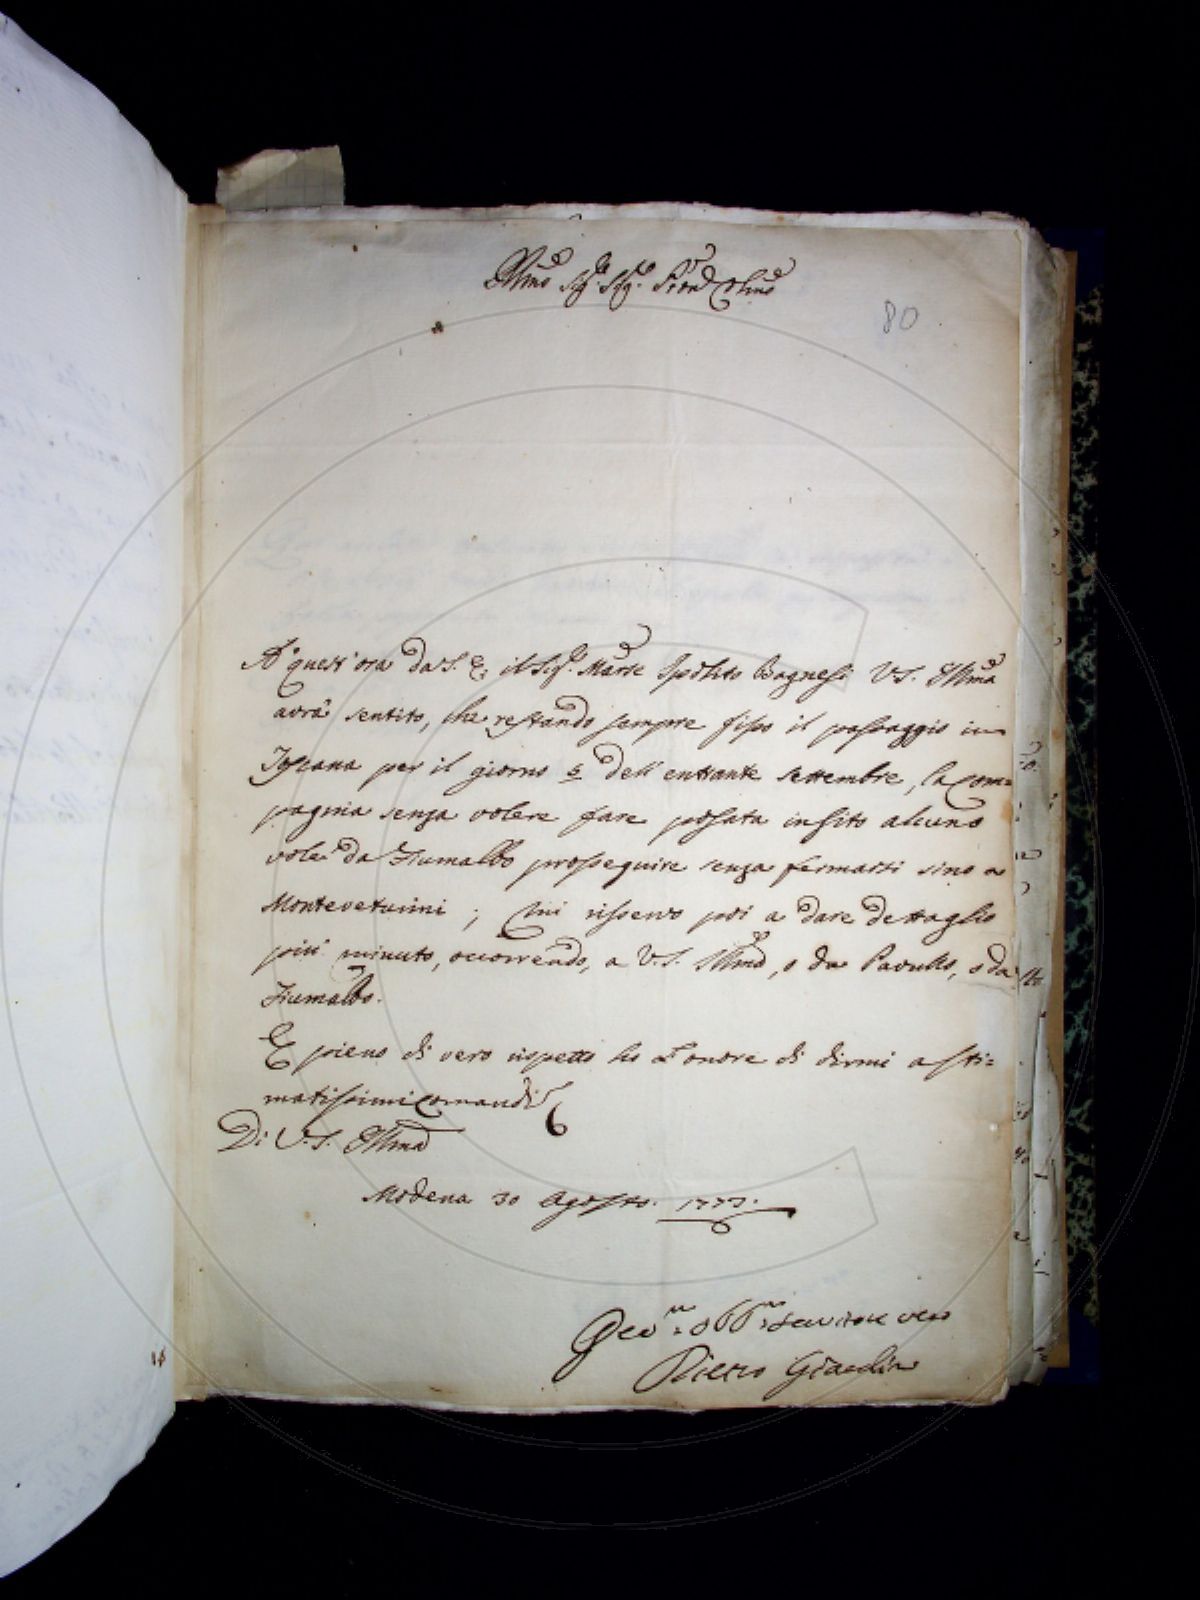 Illmo Sig.r Sig.r Pron Colmo
80
A' quest'ora da S. E. il Sig.r Marse Ipolito Bagnesi V.S. Illma
avrà sentito, che restando sempre fisso il passaggio in
Toscana per il giorno 5 dell'entrante settembre, la com=
pagnia senza volere fare posata in sito alcuno
vole da Fiumalbo proseguire senza fermarsi sino a
Montevetturini; mi riservo poi a dare dettaglio
più minuto, occorrendo, a V.S. Illma, o da Pavullo, o da
Fiumalbo.
E pieno di vero rispetto ho l'onore di dirmi a sti=
matissimi comandi
Di V.S. Illma
Modena 30 Agosto. 1773.
Dev.mo Obb.mo servitore vero
Pietro Giardini